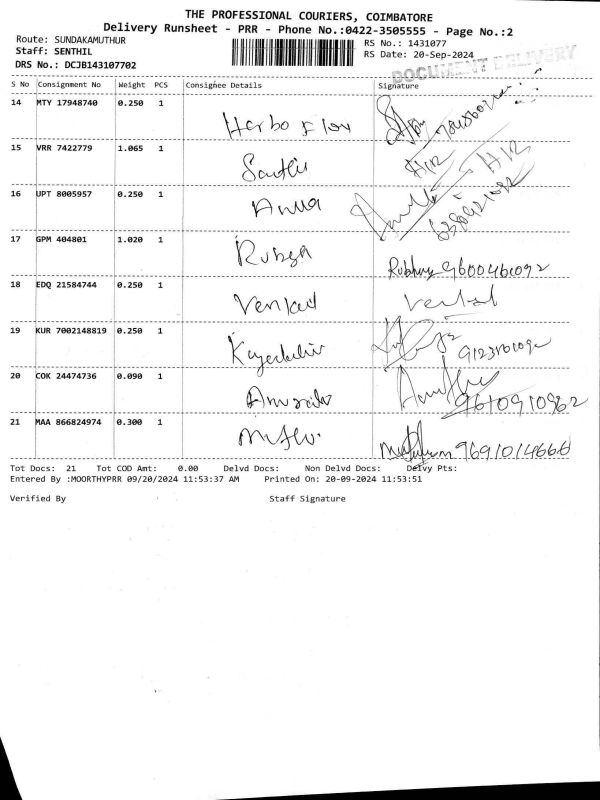 THE PROFESSIONAL COURIERS, COIMBATORE
Delivery Runsheet - PRR - Phone No.:0422-3505555 - Page No.:2
Route: SUNDAKAMUTHUR
RS No.: 1431077
Staff: SENTHIL
RS Date: 20-Sep-2024
DRS No.: DCJB143107702
DOCUMENT DELIVERY
S No Consignment No Weight PCS Consignee Details Signature
14 MTY 17948740 0.250 1 Herbo Flow
15 VRR 7422779 1.065 1
16 UPT 8005957 0.250 1 Anua
17 GPM 404801 1.020 1 9600461092
18 EDQ 21584744 0.250 1 Venkad
19 KUR 7002148819 0.250 1
20 COK 24474736 0.090 1 9610910962
21 MAA 866824974 0.300 1 9691014666
Tot Docs: 21 Tot COD Amt: 0.00 Delvd Docs: Non Delvd Docs: Delvy Pts:
Entered By :MOORTHYPRR 09/20/2024 11:53:37 AM Printed On: 20-09-2024 11:53:51
Verified By Staff Signature